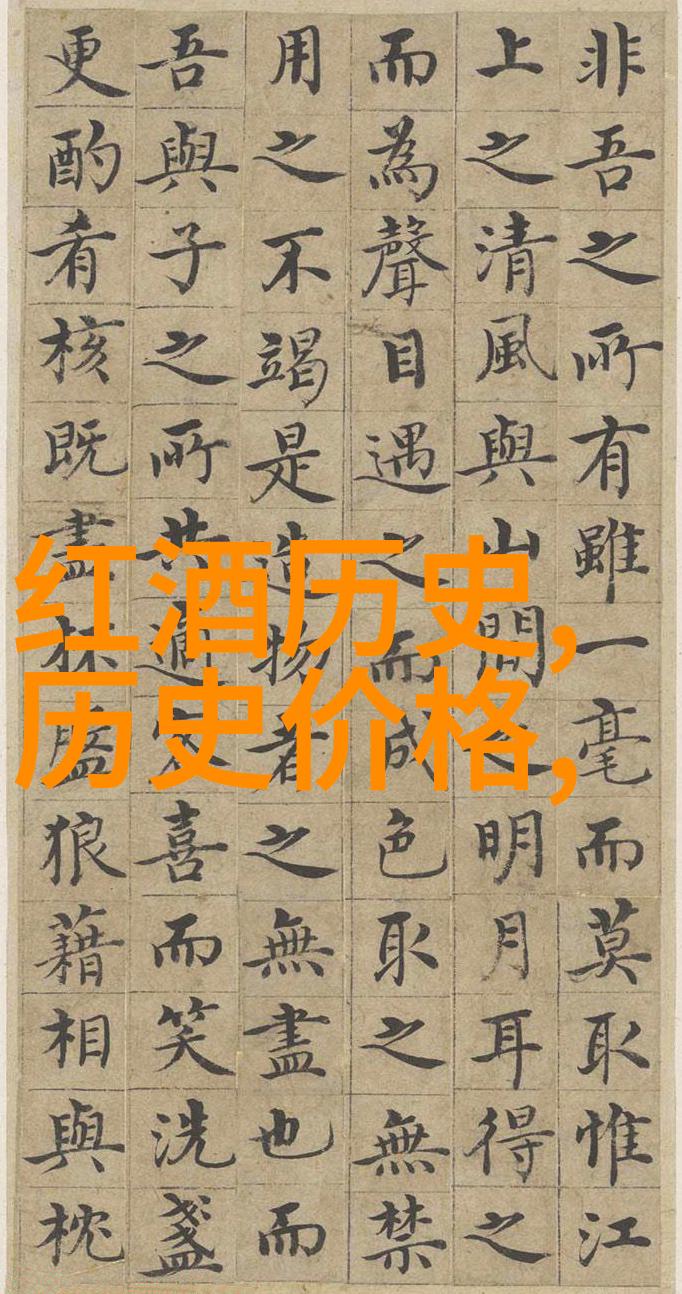 非吾之所有雖一毫而莫取惟江
上之清風與山間之明月耳得之
而為聲目遇之而成色取之無禁
用之不竭是造物者之無盡也而
吾與子之所共適客喜而笑洗盞
更酌肴核既盡杯盤狼藉相與枕
红酒历史,
历史价格,